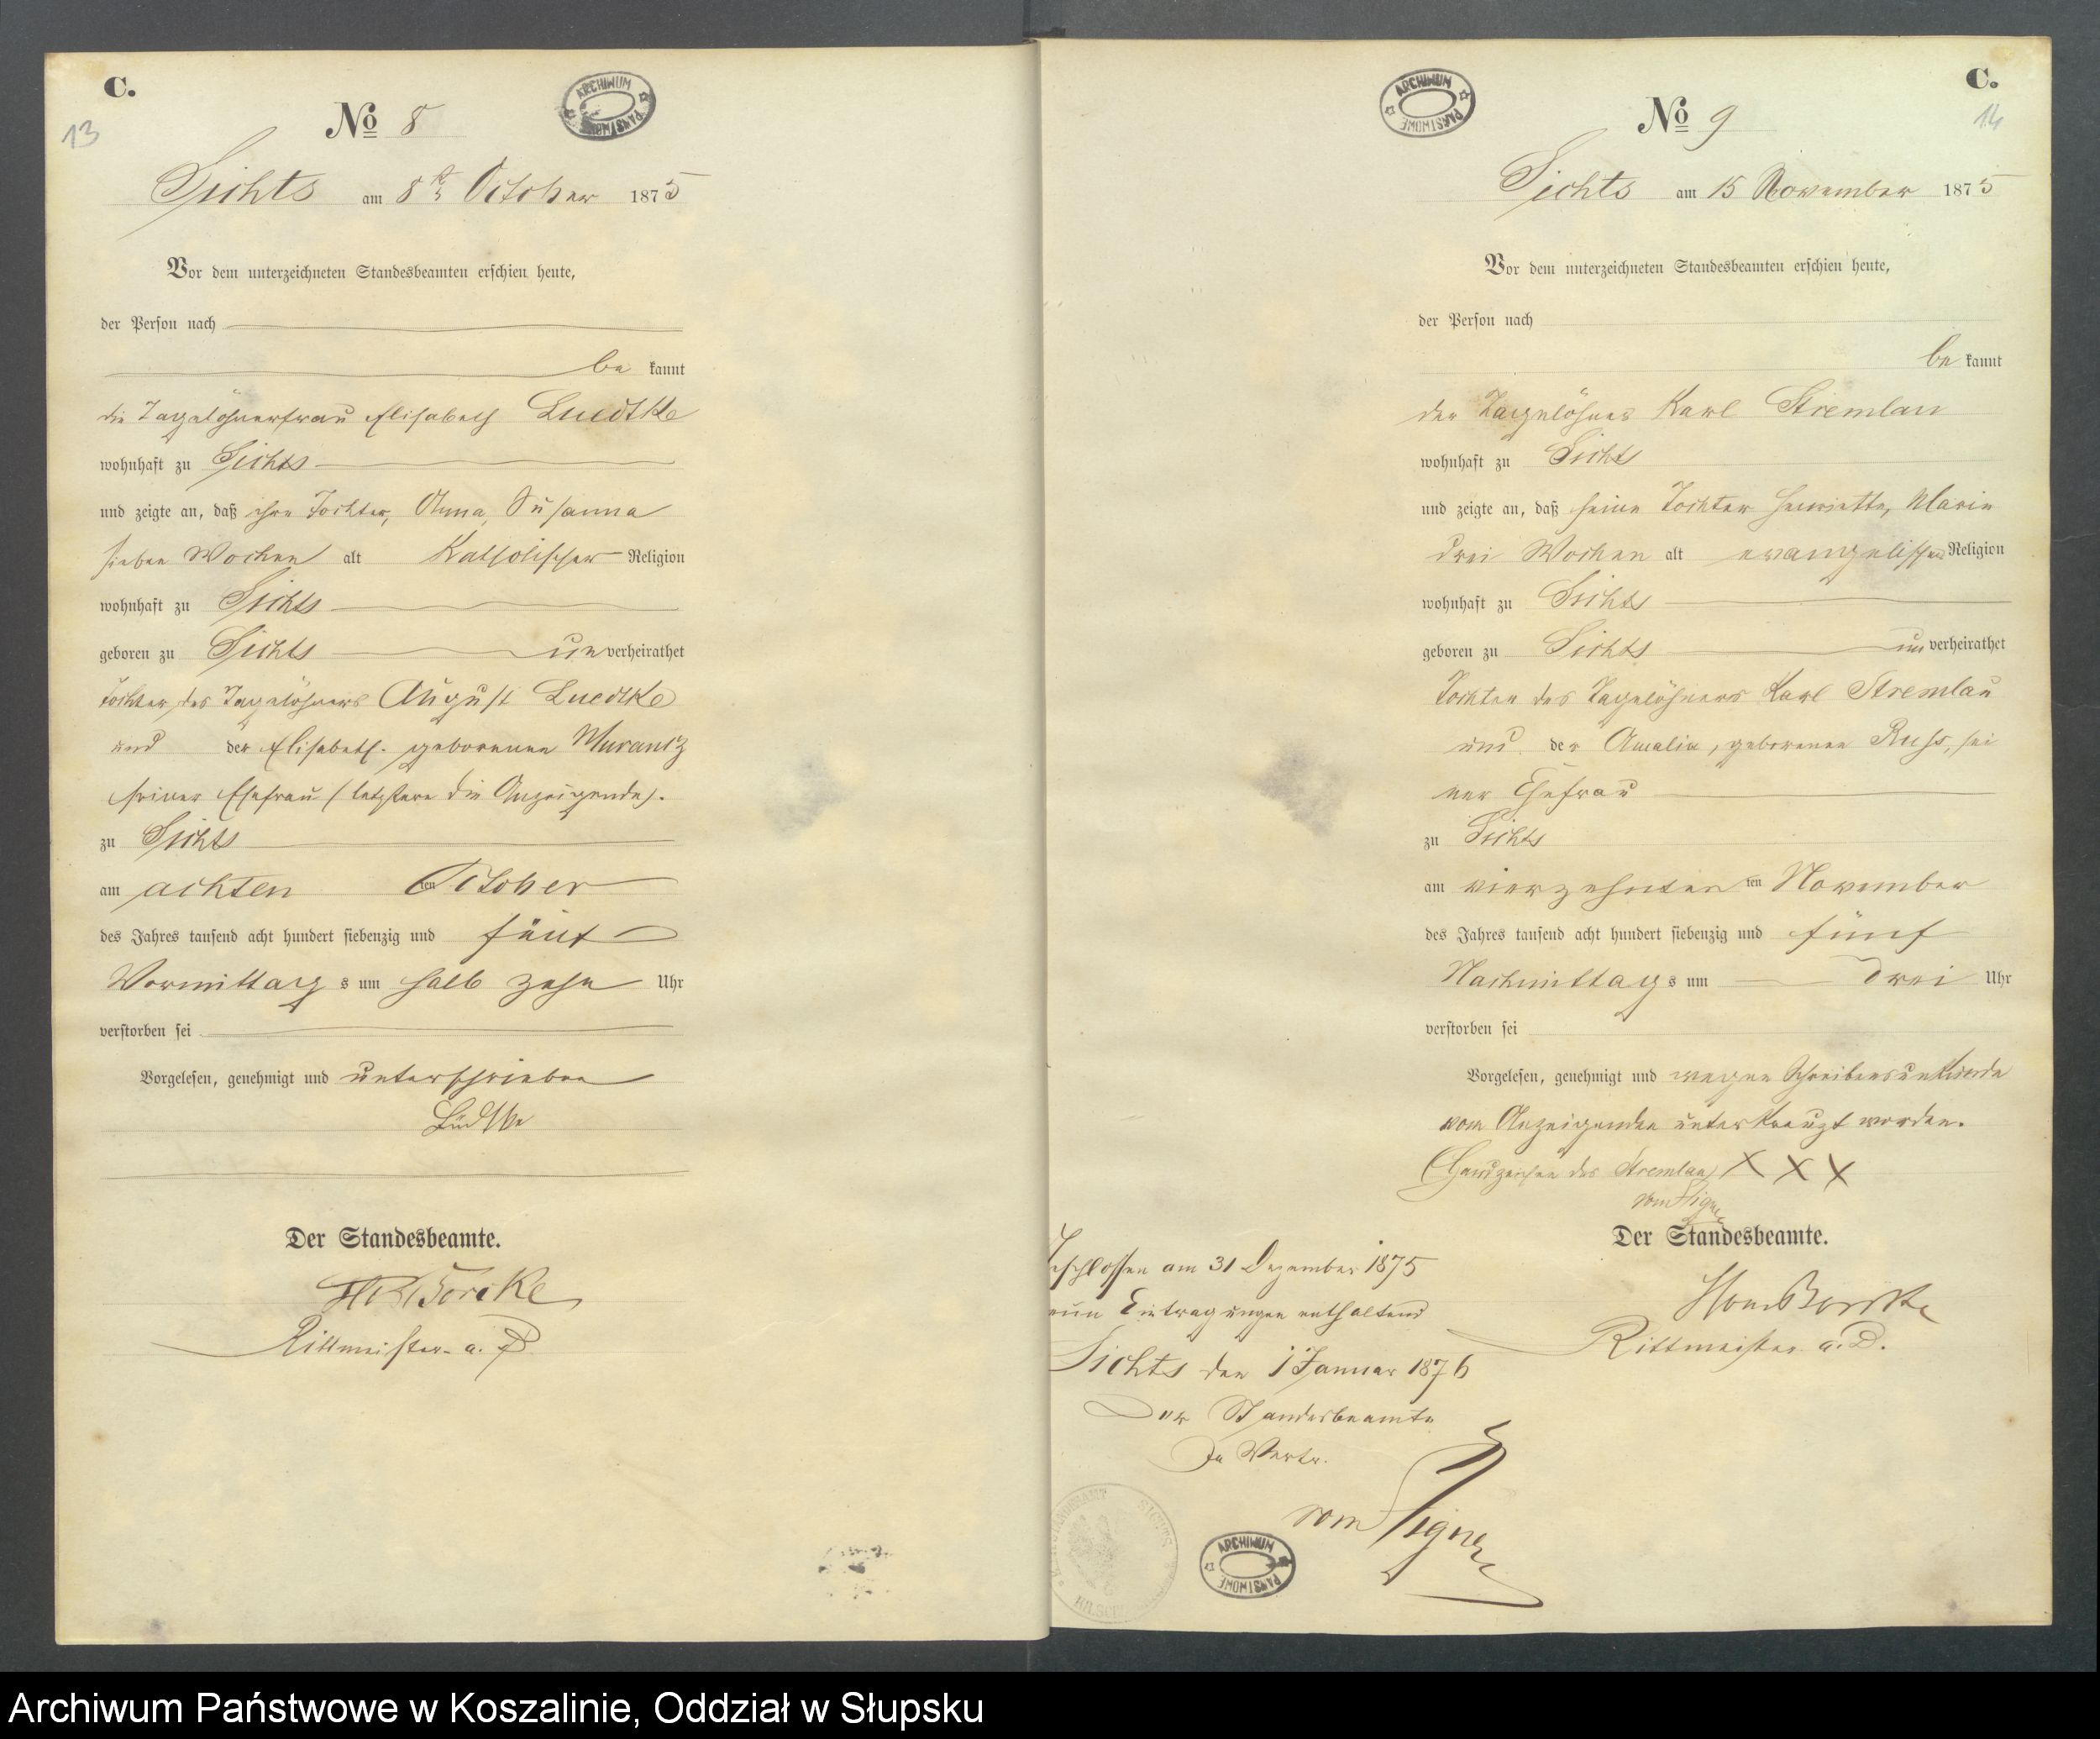 C.
13
No 8
ARCHIWUM PAŃSTWOWE
Sichts am 8ten October 1875
Vor dem unterzeichneten Standesbeamten erschien heute,
der Person nach
be kannt
die Tagelöhnerfrau Elisabeth Luedtke
wohnhaft zu Sichts
und zeigte an, daß ihre Tochter, Anna, Susanna
sieben Wochen alt Katholischer Religion
wohnhaft zu Sichts
geboren zu Sichts un verheirathet
Tochter des Tagelöhners August Luedtke
und der Elisabeth geborenen
seiner Ehefrau (letztere die Anzeigende).
zu Sichts
am achten ten October
des Jahres tausend acht hundert siebenzig und fünf
Vormittag s um halb zehn Uhr
verstorben sei
Vorgelesen, genehmigt und unterschrieben
Lüdtke
Der Standesbeamte.
Borcke
Rittmeister a. D.
C.
14
ARCHIWUM PAŃSTWOWE
No 9
Sichts am 15 November 1875
Vor dem unterzeichneten Standesbeamten erschien heute,
der Person nach
be kannt
der Tagelöhner Karl Stremlau
wohnhaft zu Sichts
und zeigte an, daß seine Tochter Henriette, Marie
drei Wochen alt evangelischer Religion
wohnhaft zu Sichts
geboren zu Sichts un verheirathet
Tochter des Tagelöhners Karl Stremlau
und der Amalie, geborenen Russ, sei
ner Ehefrau
zu Sichts
am vierzehnten ten November
des Jahres tausend acht hundert siebenzig und fünf
Nachmittag s um drei Uhr
verstorben sei
Vorgelesen, genehmigt und wegen Schreibensunkunde
vom Anzeigenden unterkreuzt worden.
Handzeichen des Stremlau X X X
Der Standesbeamte.
von Borcke
Rittmeister a. D.
schlossen am 31 Dezember 1875
eun Eintragungen enthaltend
Sichts den 1 Januar 1876
Der Standesbeamte
In Vertr.
ARCHIWUM PAŃSTWOWE
Archiwum Państwowe w Koszalinie, Oddział w Słupsku